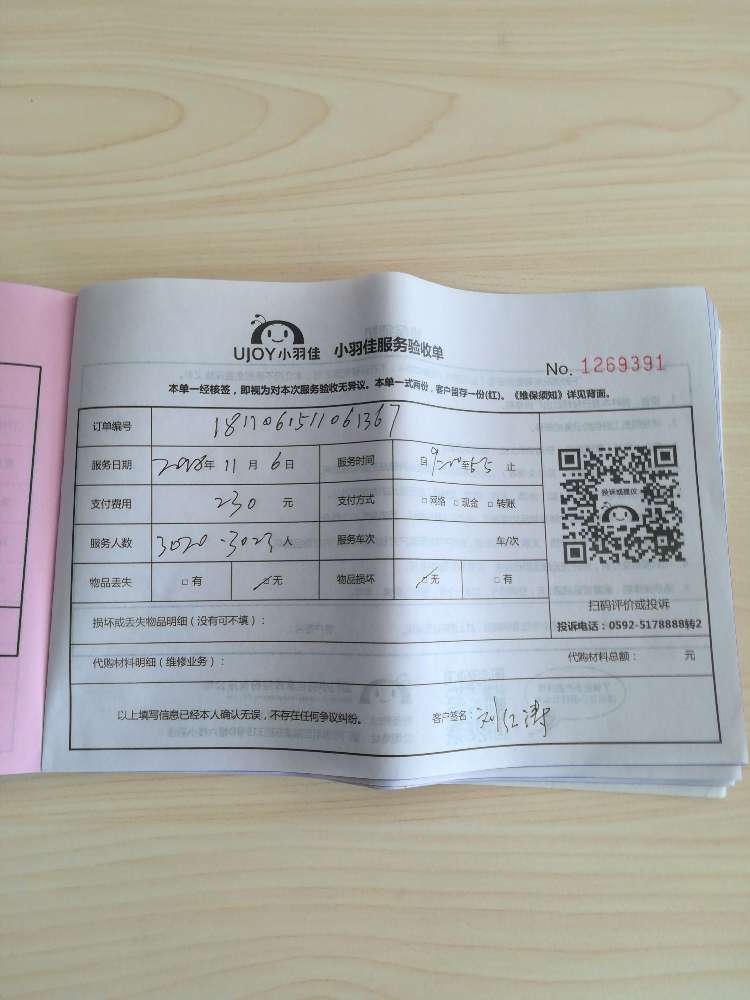 UJOY小羽佳 小羽佳服务验收单
No. 1269391
本单一经核签，即视为对本次服务验收无异议。本单一式两份，客户留存一份(红)。《维保须知》详见背面。
订单编号
服务日期 2018年 11月 6日 服务时间 自 至 止
支付费用 230 元 支付方式 □网络 □现金 □转账
投诉或建议
服务人数 3020 - 3023 人 服务车次 车/次
物品丢失 □有 □无 物品损坏 □无 □有
扫码评价或投诉
损坏或丢失物品明细（没有可不填）：
投诉电话：0592-5178888转2
代购材料明细（维修业务）： 代购材料总额： 元
以上填写信息已经本人确认无误，不存在任何争议纠纷。 客户签名：刘红涛